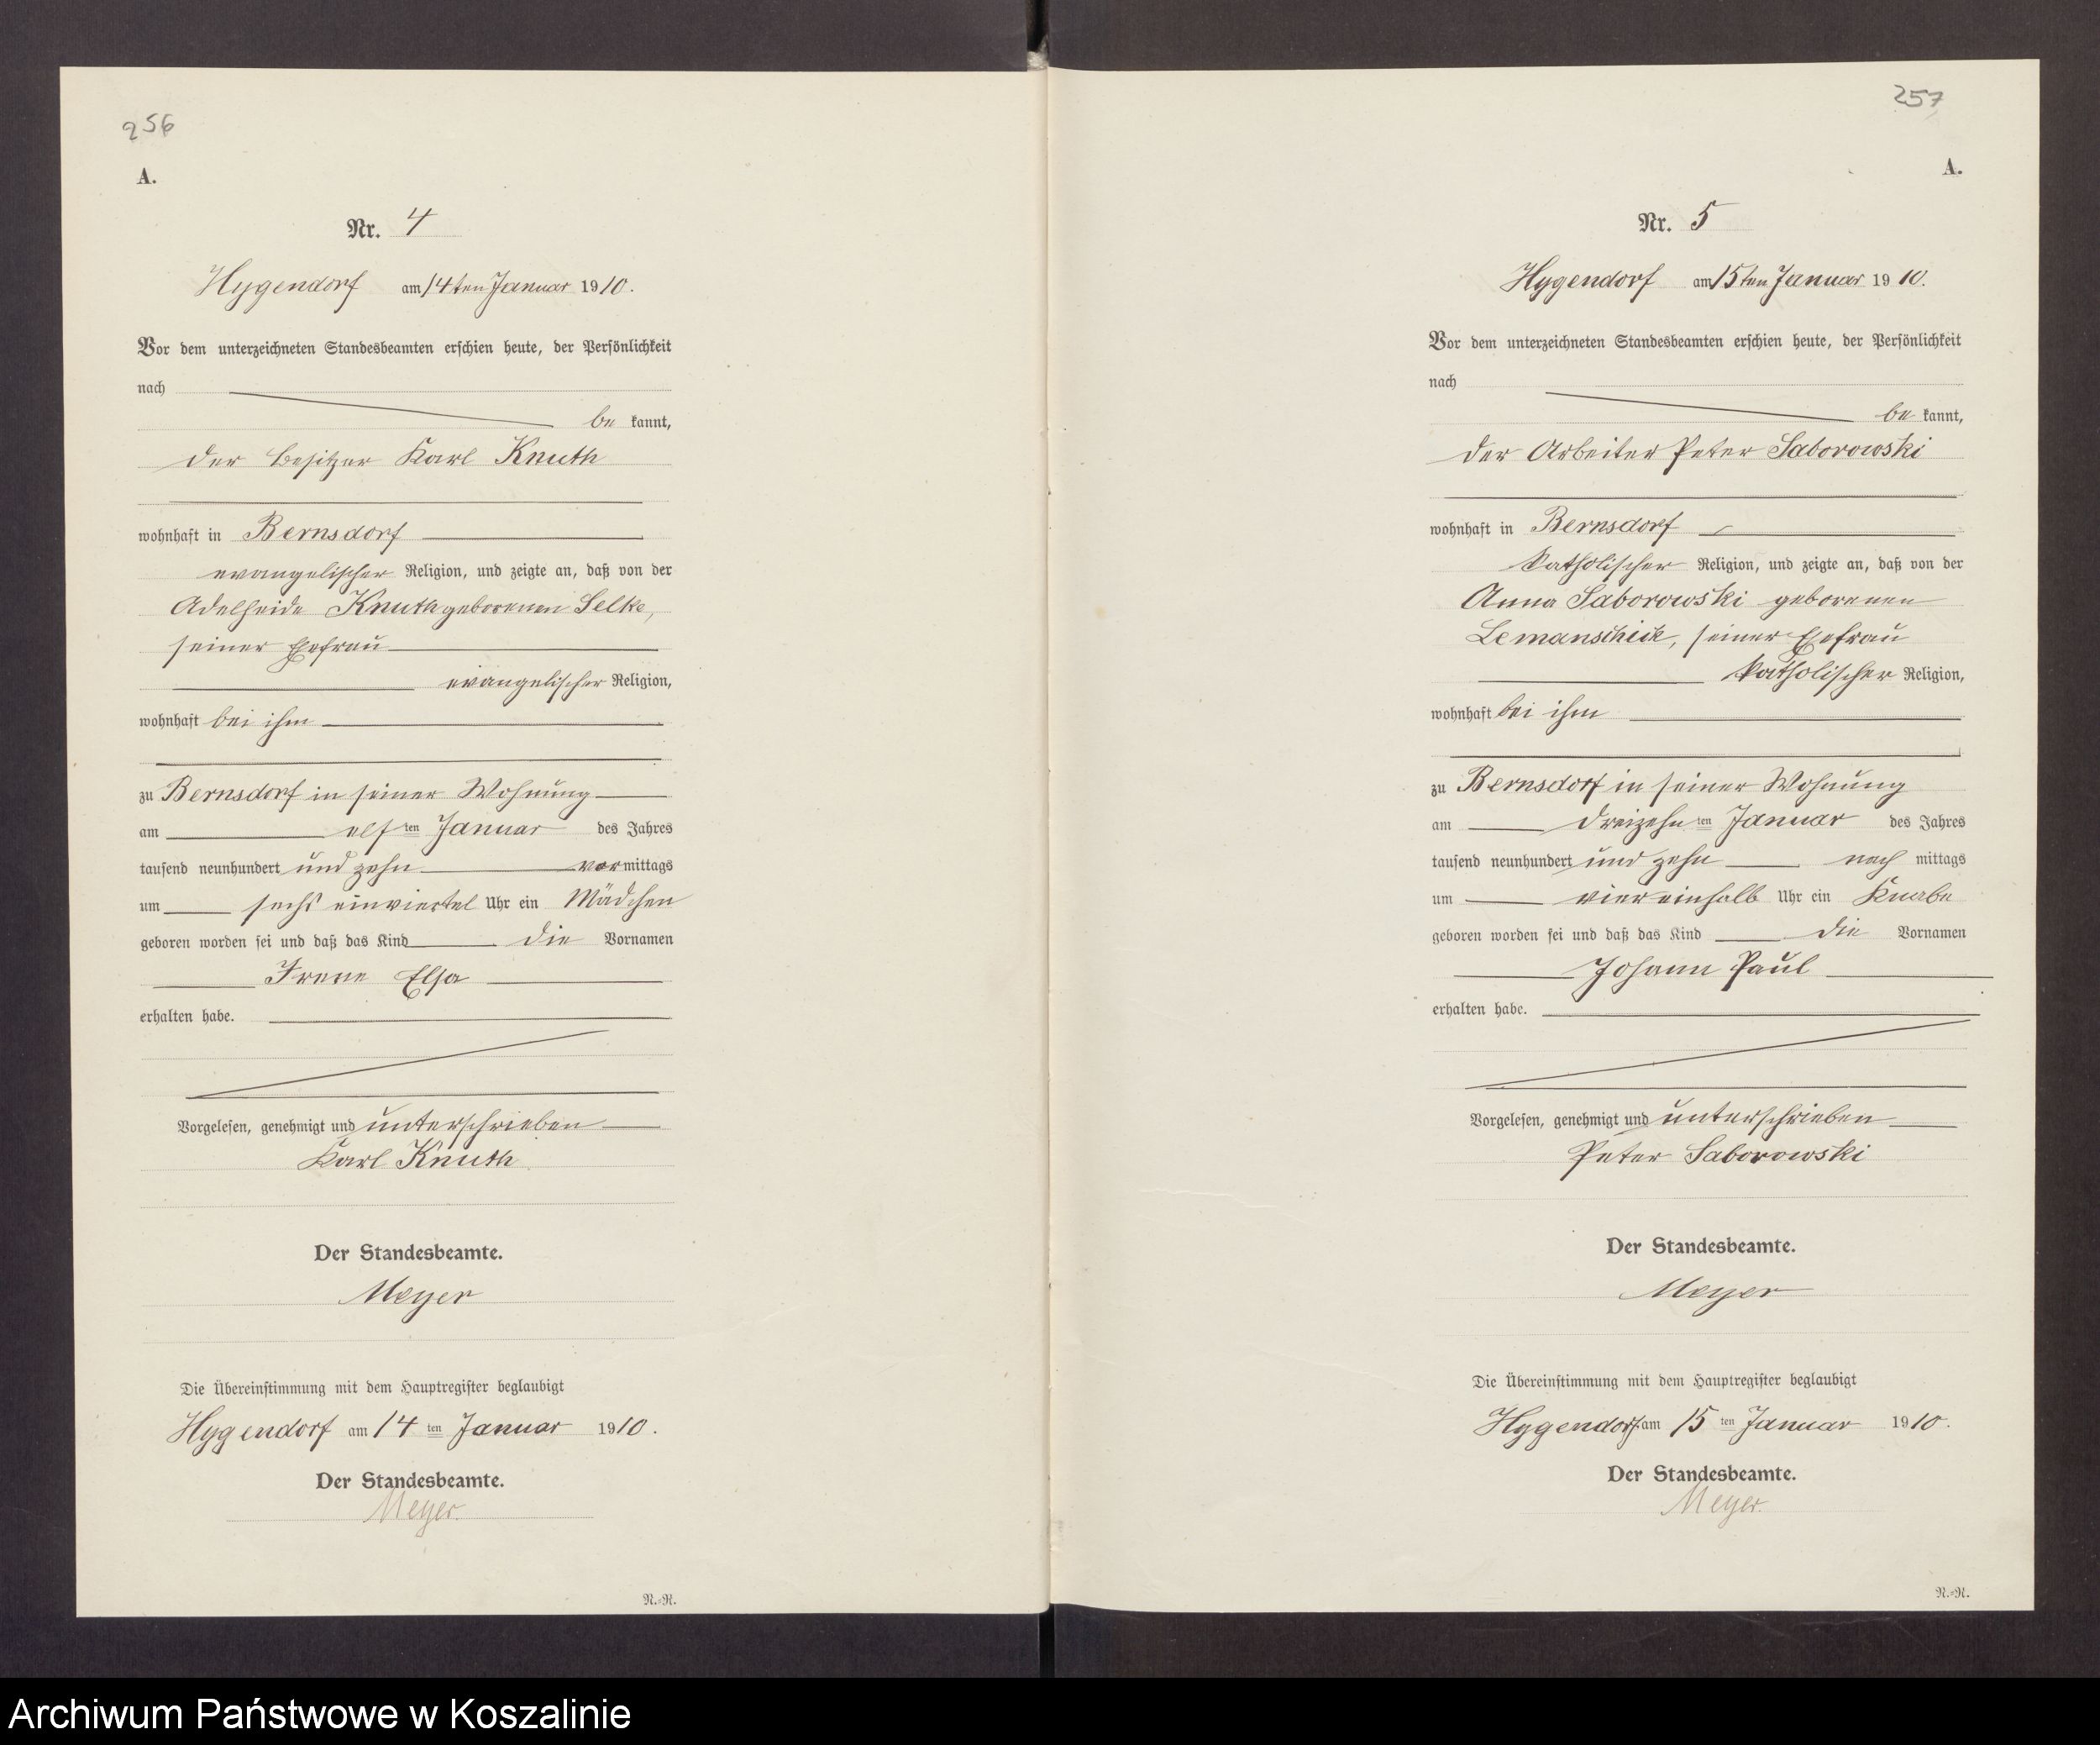 256
A.
Nr. 4
Hygendorf am 14ten Januar 1910.
Vor dem unterzeichneten Standesbeamten erschien heute, der Persönlichkeit
nach
be kannt,
der Besitzer Karl Knuth
wohnhaft in Bernsdorf
evangelischer Religion, und zeigte an, daß von der
Adelheide Knuth geborenen Selke,
seiner Ehefrau
evangelischer Religion,
wohnhaft bei ihm
zu Bernsdorf in seiner Wohnung
am elf ten Januar des Jahres
tausend neunhundert und zehn vor mittags
um sechs einviertel Uhr ein Mädchen
geboren worden sei und daß das Kind die Vornamen
Irene Elsa
erhalten habe.
Vorgelesen, genehmigt und unterschrieben
Karl Knuth
Der Standesbeamte.
Meyer
Die Übereinstimmung mit dem Hauptregister beglaubigt
Hygendorf am 14 ten Januar 1910.
Der Standesbeamte.
Meyer.
N.-R.
257
A.
Nr. 5
Hygendorf am 15ten Januar 1910.
Vor dem unterzeichneten Standesbeamten erschien heute, der Persönlichkeit
nach
be kannt,
der Arbeiter Peter Saborowski
wohnhaft in Bernsdorf
katholischer Religion, und zeigte an, daß von der
Anna Saborowski geborenen
Lemanschick, seiner Ehefrau
katholischer Religion,
wohnhaft bei ihm
zu Bernsdorf in seiner Wohnung
am dreizehn ten Januar des Jahres
tausend neunhundert und zehn nach mittags
um vier einhalb Uhr ein Knabe
geboren worden sei und daß das Kind die Vornamen
Johann Paul
erhalten habe.
Vorgelesen, genehmigt und unterschrieben
Peter Saborowski
Der Standesbeamte.
Meyer
Die Übereinstimmung mit dem Hauptregister beglaubigt
Hygendorf am 15 ten Januar 1910.
Der Standesbeamte.
Meyer.
N.-R.
Archiwum Państwowe w Koszalinie